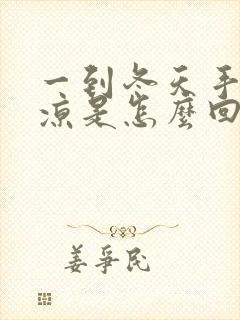 一到冬天手
凉是怎麼回
姜爭民